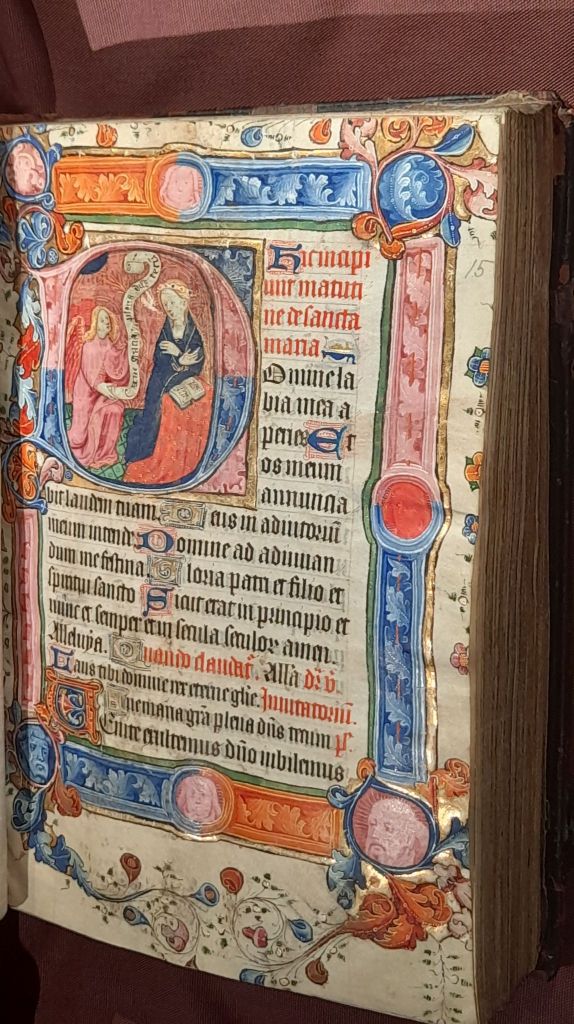 Aue gracia plena dn̄s tecū
15
Hic incipi
unt matuti
ne de sancta
maria
Omine la
bia mea a
peries Et
os meum
annuncia
bit laudem tuam Deus in adiutoriū
meum intende Domine ad adiuuan
dum me festina Gloria patri et filio et
spiritui sancto Sicut erat in principio et
nunc et semper et in secula seculor amen.
Alleluya. Quando claudat᷑. Allā dr̄ v̄
Laus tibi domine rex eterne glīe. Inuitatoriū.
Aue maria grā plena dn̄s tecum ps̄.
Uenite exultemus dn̄o iubilemus